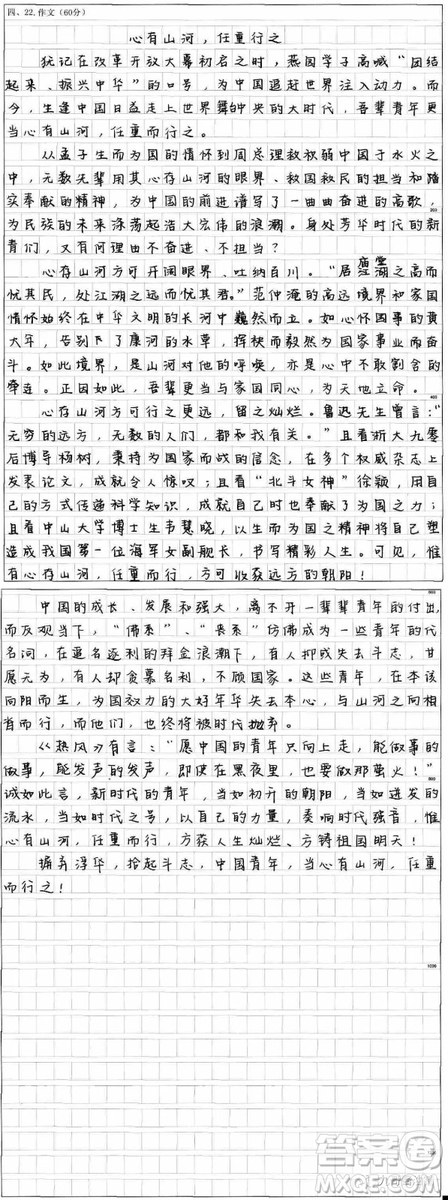 四、22.作文(60分)
心有山河，任重行之
犹记在改革开放大幕初启之时，燕园学子高喊“团结
起来、振兴中华”的口号，为中国追赶世界注入动力。而
今，生逢中国日益走上世界舞台中央的大时代，吾辈青年更
当心有山河，任重而行之。
从孟子生而为国的情怀到周总理救积弱中国于水火之
中，无数先辈用其心存山河的眼界、救国救民的担当和踏
实奉献的精神，为中国的前进谱写了一曲曲奋进的高歌，
200
为民族的未来涤荡起浩大宏伟的浪潮。身处芳华时代的新
青们，又有何理由不奋进、不担当？
心存山河方可开阔眼界、吐纳百川。“居庙堂之高而
忧其民，处江湖之远而忧其君。”范仲淹的高远境界和家国
情怀始终在中华文明的长河中巍然而立。如心怀国事的黄
大年，告别下了康河的水草，挥袂而毅然为国家事业而奋
斗。如此境界，是山河对他的呼唤，亦是心中不敢割舍的
牵连。正因如此，吾辈更当与家国同心，为天地立命。
400
心存山河方可行之更远，留之灿烂。鲁迅先生曾言：“
无穷的远方，无数的人们，都和我有关。”且看浙大九零
后博导杨树，秉持为国家而战的信念，在多个权威杂志上
发表论文，成就令人惊叹；且看“北斗女神”徐颖，用自
己的方式传递科学知识，成就自己时也奉献了为国之力；
且看中山大学博士生韦慧晓，以生而为国之精神将自己塑
造成我国第一位海军女副舰长，书写精彩人生。可见，惟
有心存山河，任重而行，方可收获远方的朝阳！
600
中国的成长、发展和强大，离不开一辈辈青年的付出，
而反观当下，“佛系”、“丧系”仿佛成为一些青年的代
名词，在逐名逐利的拜金浪潮下，有人抑或失去斗志，甘
属无为，有人抑贪慕名利，不顾国家。这些青年，在本该
向阳而生，为国效力的大好年华失去本心，与山河之向相
背而行，而他们，也终将被时代抛弃。
《热风》有言：“愿中国的青年只向上走，能做事的
做事，能发声的发声，即使在黑夜里，也要做那萤火！”
800
诚如此言，新时代的青年，当如初升的朝阳，当如迸发的
流水，当如时代之号，以自己的力量，奏响时代强音，惟
心有山河，任重而行，方获人生灿烂、方铸祖国明天！
摒弃浮华，拾起斗志，中国青年，当心有山河，任重
而行之！
1000
答案圈